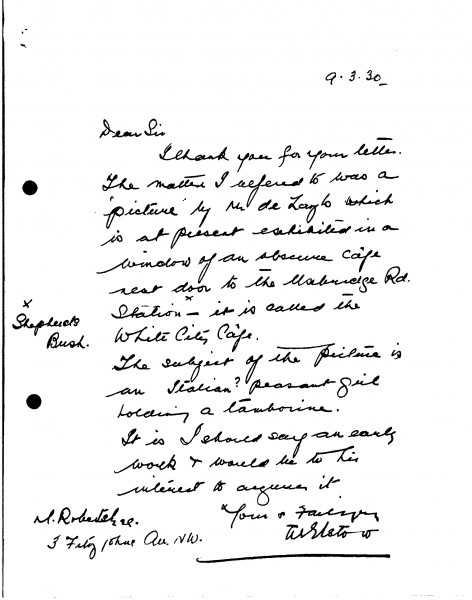 9.3.30
Dear Sir
I thank you for your letter.
The matter I refered to was a
'picture' by Mr de Laszlo which
is at present exhibited in a
window of an obscure café
next door to the Uxbridge Rd.
Station x – it is called the
White City Café.
x
Shepherds
Bush.
The subject of the picture is
an Italian? peasant girl
holding a tamborine.
It is I should say an early
work & would be to his
interest to acquire it
Yours Faithfully
M. Roberts Esq.
3 Fitzjohns Ave NW.